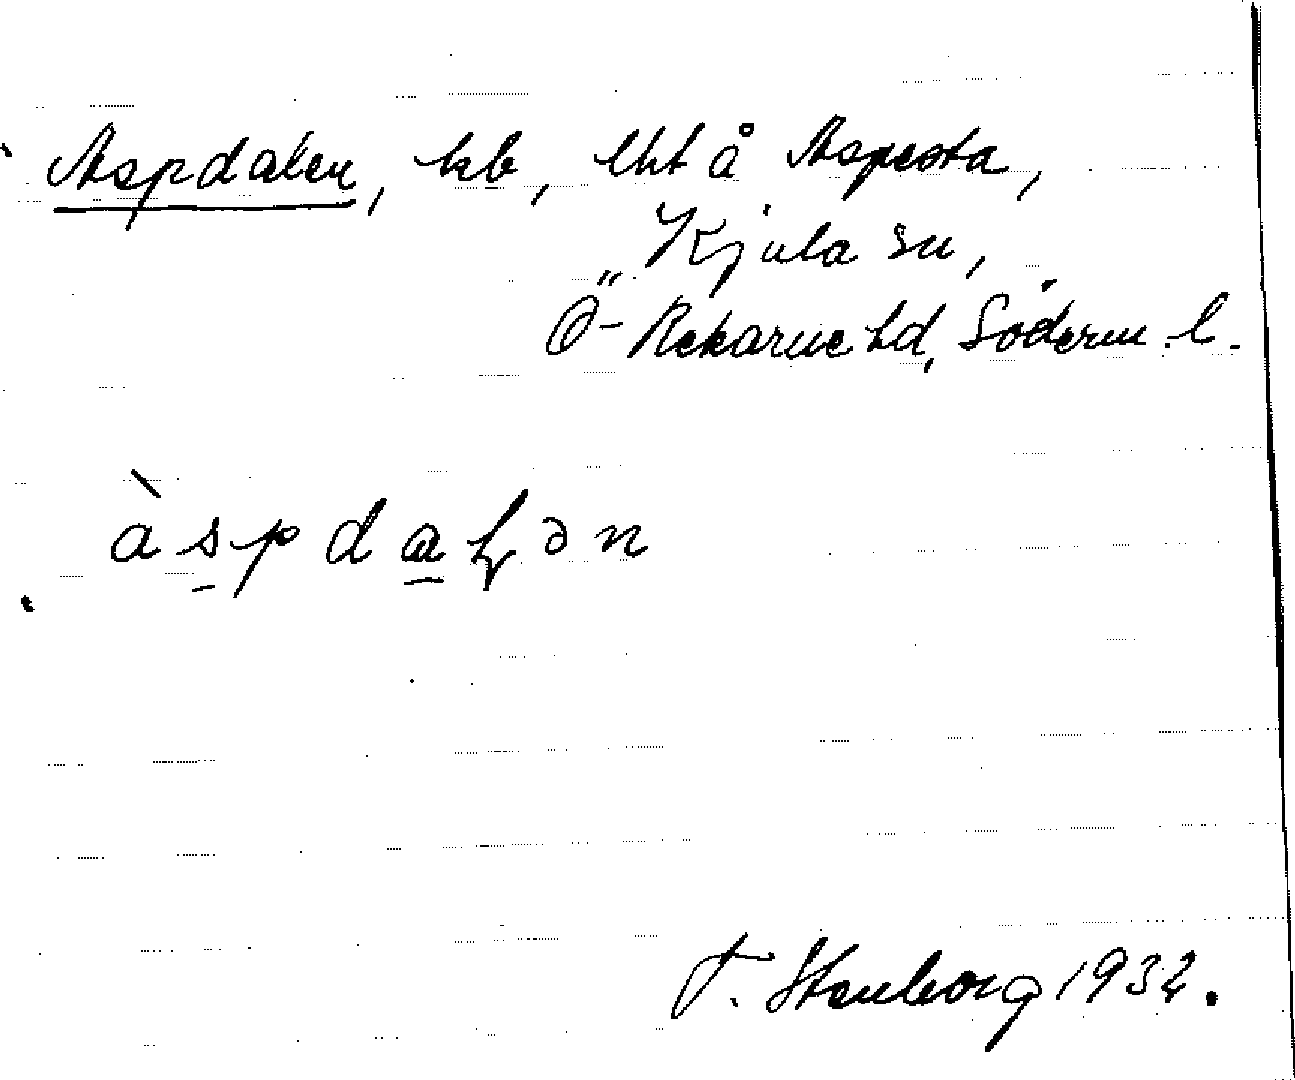 Aspdalen, kb, lht å Aspesta,
Kjula sn,
Ö-Rekarne hd, Söderm. l.
àspdaɽən
F. Stenborg 1932.